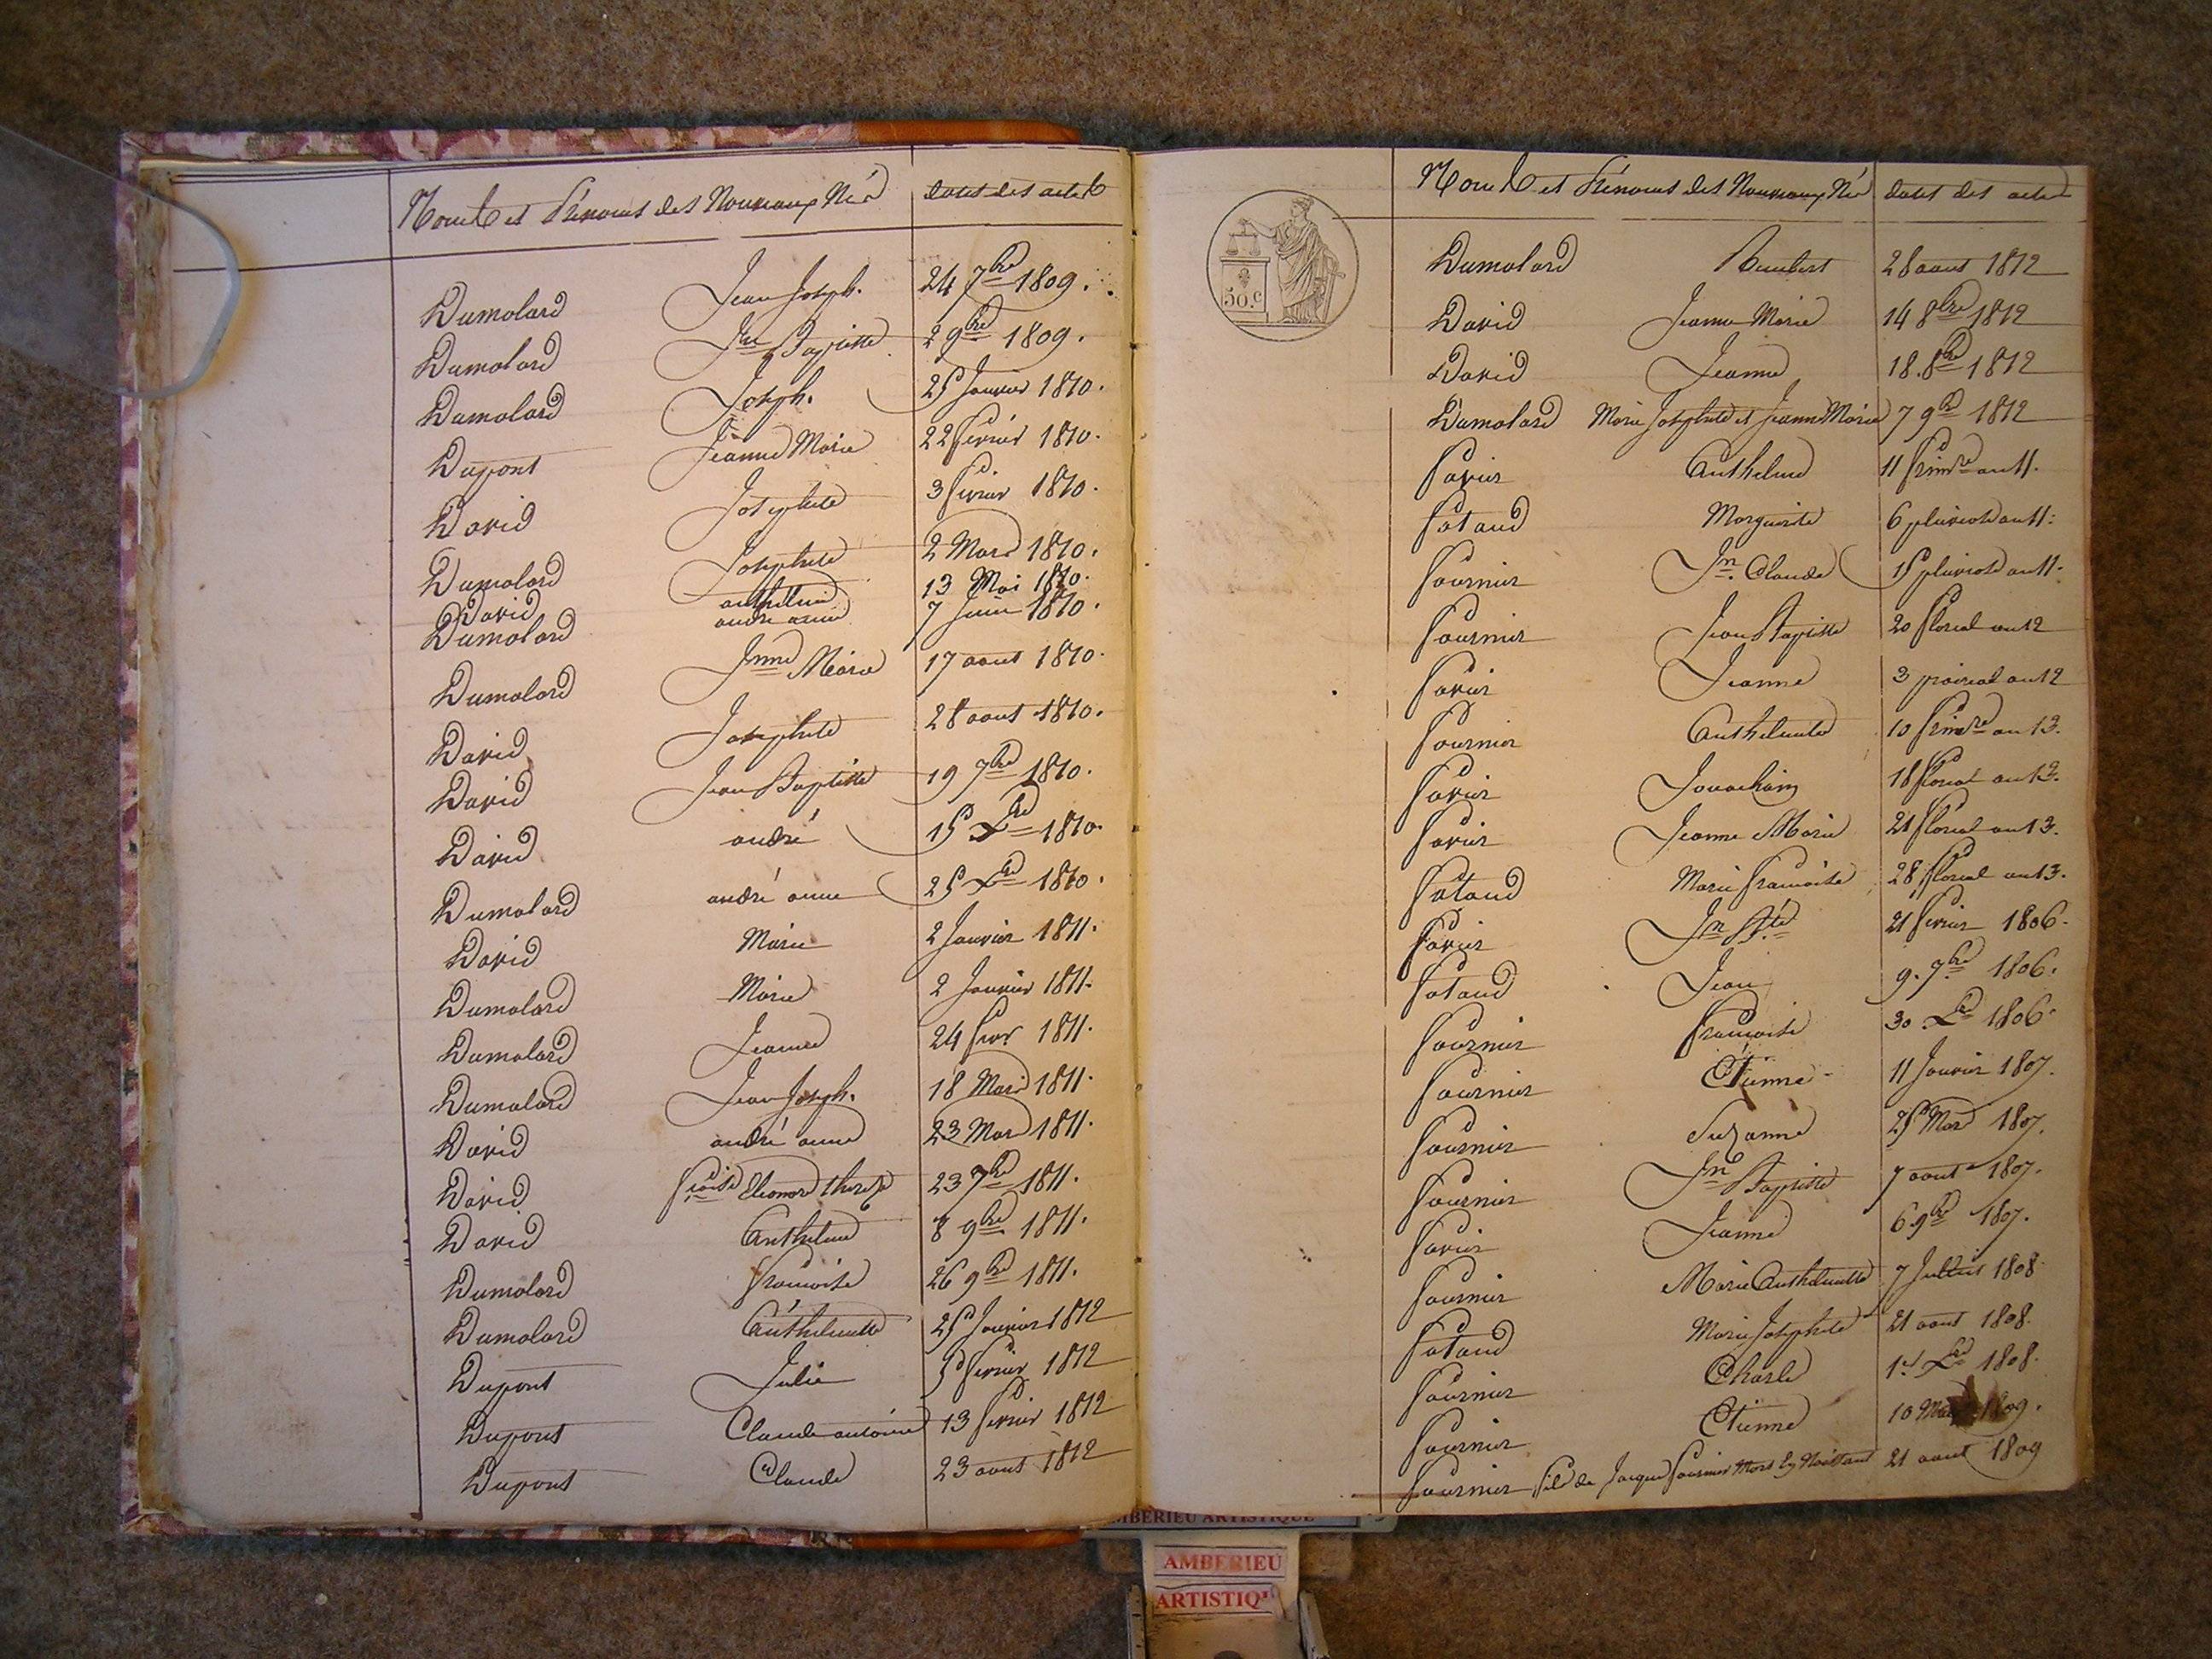 Noms et Prénoms des Nouveaux Nés dates des actes
Dumolard Jean Joseph. 24 7bre 1809.
Dumolard Jn Baptiste 2 9bre 1809.
Dumolard Joseph. 25 Janvier 1810.
Dupont Jeanne Marie 22 février 1810.
David Josephte 3 février 1810.
Dumolard Josephte 2 Mars 1810.
David anthelme 13 Mai 1810.
Dumolard andré anne 7 Juin 1810.
Dumolard Jnne Marie 17 aout 1810.
David Josephte 28 aout 1810.
David Jean Baptiste 19 7bre 1810.
David andré 15 Xbre 1810.
Dumolard andré anne 25 Xbre 1810.
David Marie 2 Janvier 1811.
Dumolard Marie 2 Janvier 1811.
Dumolard Jeanne 24 fevr 1811.
Dumolard Jean Joseph. 18 Mars 1811.
David andré anne 23 Mars 1811.
David Eleonore therese 23 7bre 1811.
David Anthelme 8 9bre 1811.
Dumolard francoise 26 9bre 1811.
Dumolard Anthelmette 25 Janvier 1812
Dupont Julie 5 février 1812
Dupont Claude antoine 13 février 1812
Dupont Claude 23 aout 1812
50.c
Noms et Prénoms des Nouveaux Nés dates des actes
Dumolard Rambert 28 aout 1812
David Jeanne Marie 14 8bre 1812
David Jeanne 18. 8bre 1812
Dumolard Marie Josephte et Jeanne Marie 7 9bre 1812
favier Anthelme 11 frimre an 11.
fataud Marguerite 6 pluviose an 11.
fournier Jn. Claude 15 pluviose an 11.
fournier Jean Baptiste 20 floreal an 12
favier Jeanne 3 prairial an 12
fournier Anthelmete 10 frimre an 13.
favier Jouachim 18 floreal an 13.
favier Jeanne Marie 21 floreal an 13.
fataud Marie francoise 28 floreal an 13.
favier Jn Bte 21 février 1806.
fataud Jean 9. 7bre 1806.
fournier francoise 30 Xbre 1806.
fournier Etienne 11 Janvier 1807.
fournier Suzanne 25 Mars 1807.
fournier Jn Baptiste 7 aout 1807.
favier Jeanne 6 9bre 1807.
fournier Marie Anthelmette 7 Juillet 1808
fataud Marie Josephte 21 aout 1808.
fournier Charle 1er Xbre 1808.
fournier Etienne 10 1809.
fournier fils de Jacque fournier Mort En Naissant 21 aout 1809
AMBERIEU ARTISTIQUE
AMBERIEU
ARTISTIQ